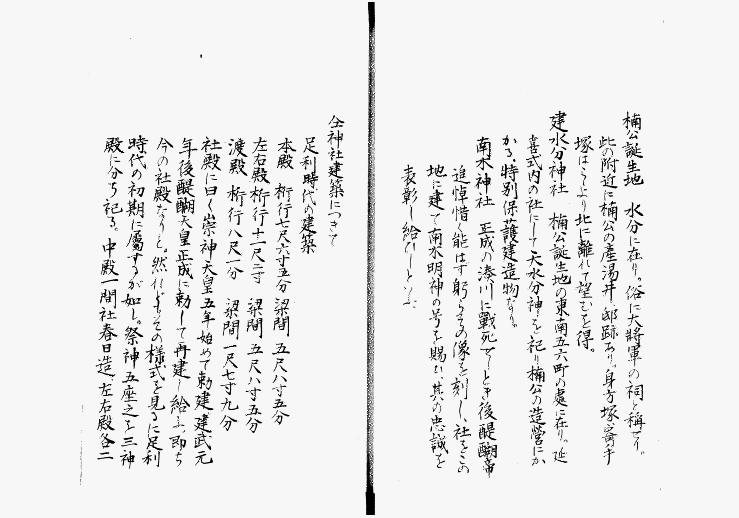 楠公誕生地　水分に在り。俗に大將軍の祠と稱せり。
此の附近に楠公の産湯井、邸跡あり。身方塚、寄手
塚はこゝより北に離れて望むを得。
建水分神社　楠公誕生地の東南五六町の處に在り。延
喜式内の社にして天水分神を祀り楠公の造營にか
かる。特別保護建造物なり。
南木神社　正成の湊川に戰死せしとき後醍醐帝
追悼惜く能はず躬らその像を刻し、社をこの
地に建て南木明神の号を賜ひ其の忠誠を
表彰し給ひしといふ
仝神社建築につきて
足利時代の建築
本殿　桁行七尺六寸五分　梁間　五尺八寸五分
左右殿桁行十一尺二寸　梁間　五尺八寸五分
渡殿　桁行八尺一分　梁間　一尺七寸九分
社殿に曰く崇神天皇五年始めて勅建建武元
年後醍醐天皇正成に勅して再建し給ふ、即ち
今の社殿なりと。然れどもその様式を見るに足利
時代の初期に屬するが如し。祭神五座之を三神
殿に分ち祀る。中殿一間社春日造　左右殿各二